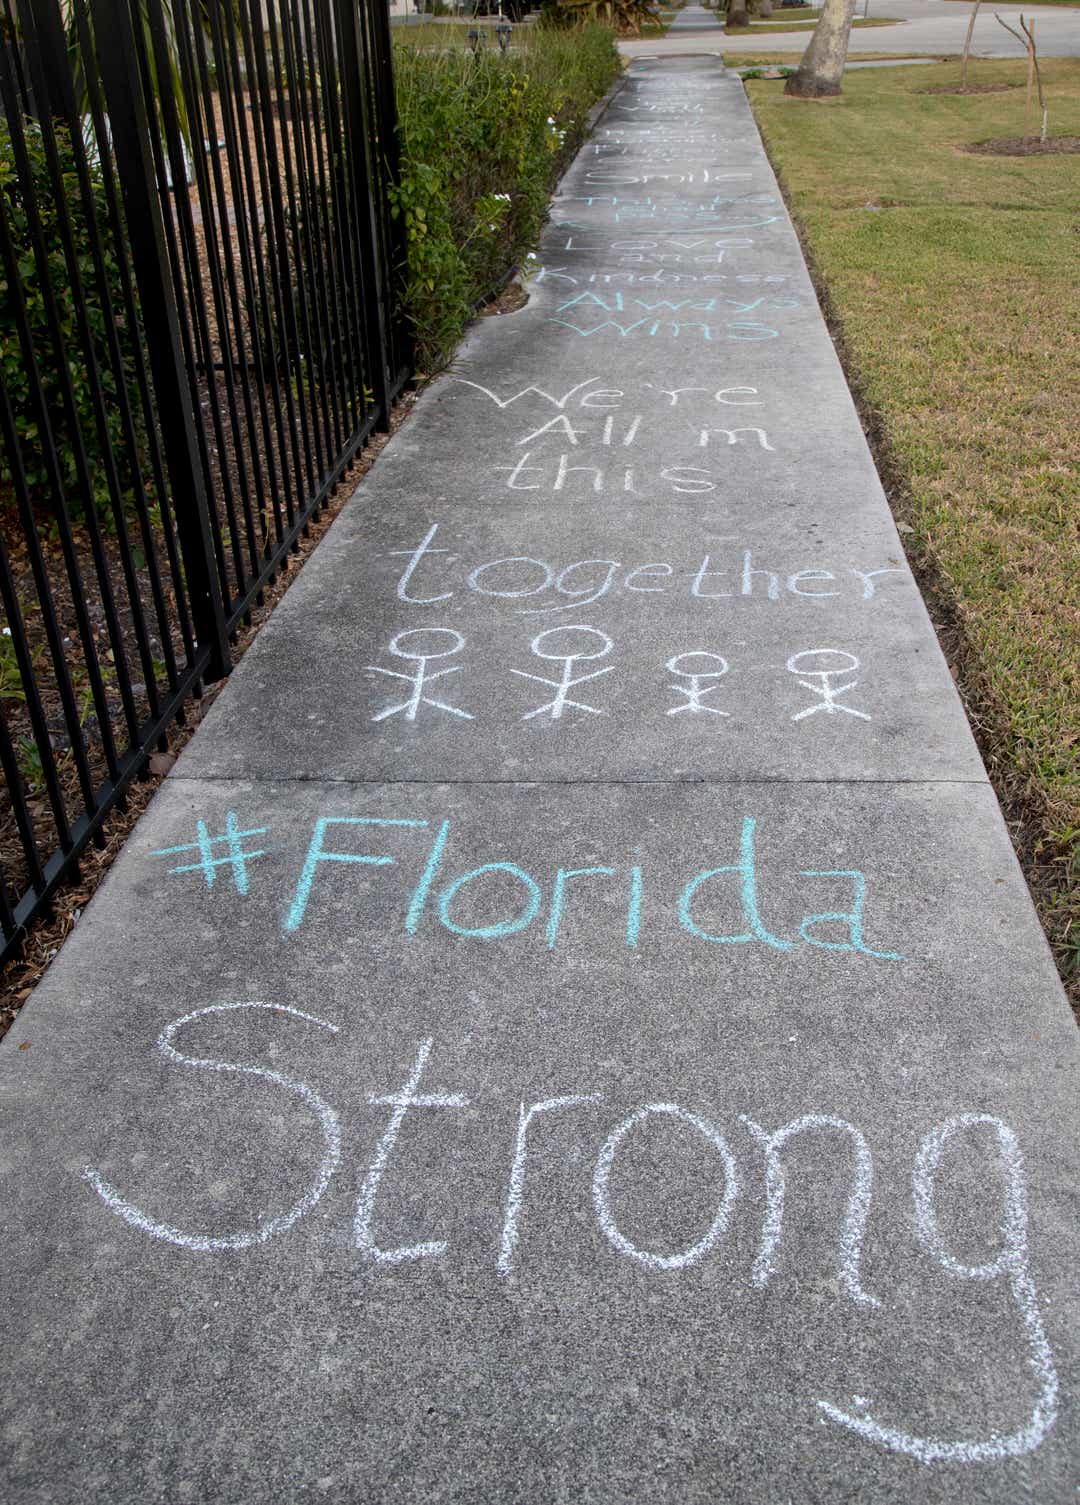 Smile
Think
Love
and
Kindness
Always
Wins
We're
All in
this
together
#Florida
Strong